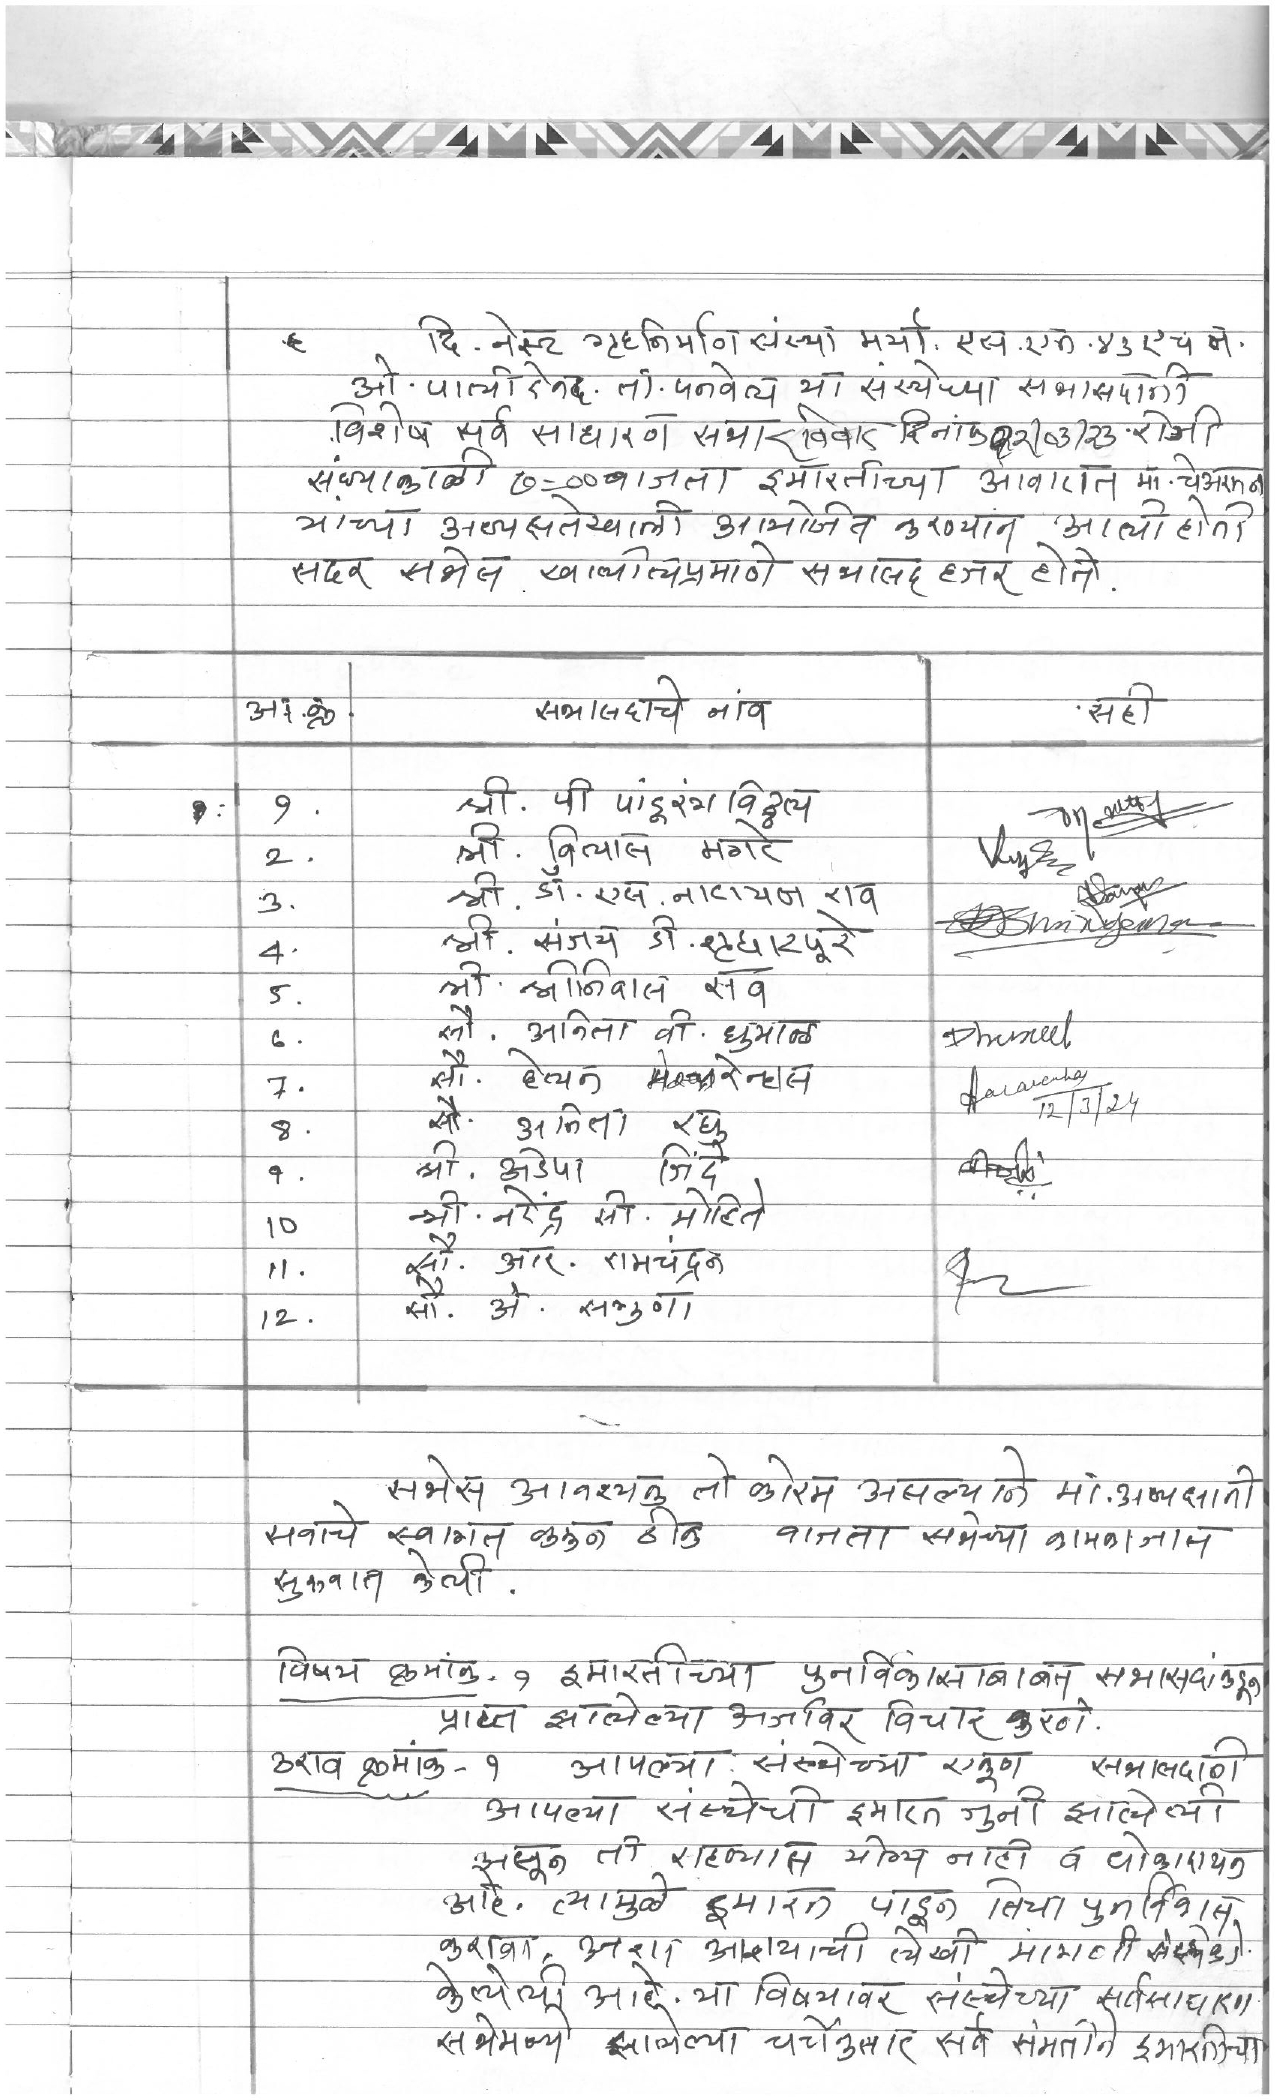 दि. नेस्ट गृहनिर्माण संस्था मर्या. एस.एन. ४३ एच नं.
ओ. ता. पनवेल या संस्थेच्या सभासदांनी
विशेष सर्व साधारण सभा रविवार दिनांक /03/23 रोजी
संध्याकाळी ७=०० वाजता इमारतीच्या आवारात मा. चेअरमन
यांच्या अध्यक्षतेखाली आयोजित करण्यान आली होती
सदर सभेस खालीलप्रमाणे सभासद हजर होते.
अ. क्रं. सभासदाचे नांव सही
१. श्री. पी पांडूरंग विठ्ठल
2. श्री. विलास मगरे
3. श्री. डॉ. एस. नारायण राव
4. श्री. संजय डी. शृंधारपूरे
5. श्री. श्रीनिवास सर्व
6. सौ. अनिता वी. धुमाळ Dhumal
7. सौ. हेलन मेस्करेन्हास 12/3/24
8. सौ. अनिता रघु
9. श्री. अडेपा जिंदे
10 श्री. नरेंद्र सी. मोहिते
11. सौ. आर. रामचंद्रन
12. सौ. अे. सगुणा
सभेस आवश्यक तो कोरम असल्याने मा. अध्यक्षानी
सर्वाचे स्वागत करून ठीक वाजता सभेच्या कामकाजास
सुरुवात केली.
विषय क्रमांक - १ इमारतीच्या पुनर्विकासाबाबत सभासदांकडून
प्राप्त झालेल्या अर्जावर विचार करणे.
ठराव क्रमांक - १ आपल्या संस्थेच्या एकूण सभासदानी
आपल्या संस्थेची इमारत जुनी झालेली
असून ती राहण्यास योग्य नाही व धोकादायक
आहे. त्यामुळे इमारत पाडून तिचा पुनर्विकास
करावा, अशा आशयाची लेखी मागणी संस्थेकडे
केलेली आहे. या विषयावर संस्थेच्या सर्वसाधारण
सभेमध्ये झालेल्या चर्चेनुसार सर्व संमतीने इमारतीचा